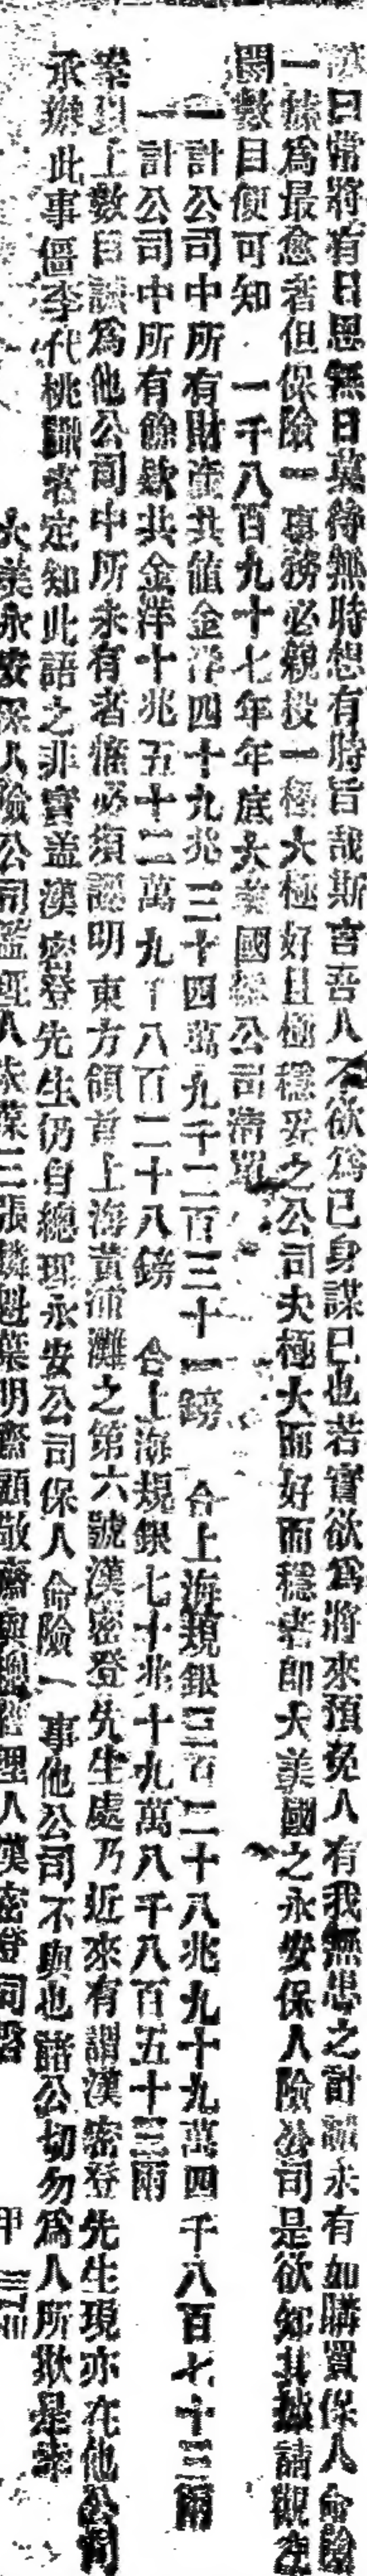 諺曰常將有日思無日莫待無時想有時旨哉斯言吾人不欲爲己身謀已也若實欲爲將來預免人有我無患之計誠未有如購買保人命險
一法爲最愈者但保險一事務必親投一極大極好且極穩妥之公司夫極大而好而穩者即大美國之永安保人險公司是欲知其據請觀左
開數目便可知 一千八百九十七年年底大美國公司清單
一計公司中所有財產共值金洋四十九兆三十四萬九千二百三十一鎊 合上海規銀三百二十八兆九十九萬四千八百七十三兩
一計公司中所有餘款共金洋十兆五十二萬九千八百二十八鎊 合上海規銀七十兆十九萬八千八百五十三兩
案以上數目誠爲他公司中所未有者惟必須認明東方領首上海黃浦灘之第六號漢密登先生處乃近來有謂漢密登先生現亦在他公司
承辦此事僵李代桃識者定知此語之非實蓋漢密登先生仍自總理永安公司保人命險一事他公司不與也諸公切勿爲人所欺是幸
大美永安保人險公司 三張麟魁葉明齋顧敬齋 理人漢密登同啓